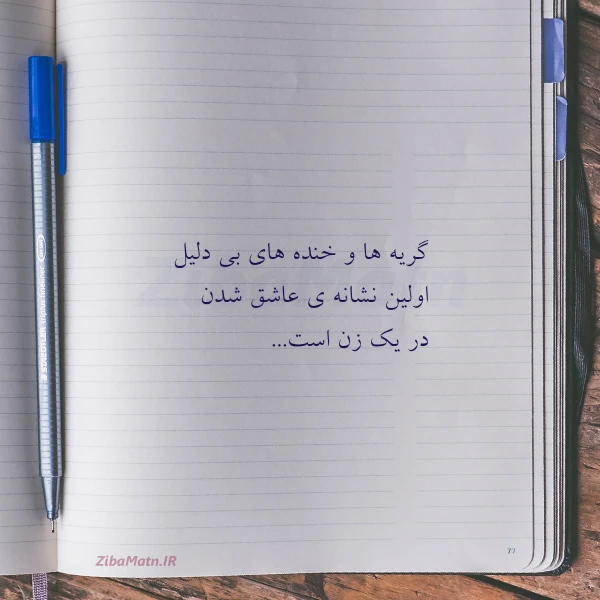 گریه ها و خنده های بی دلیل
اولین نشانه ی عاشق شدن
در یک زن است...
ZibaMatn.IR